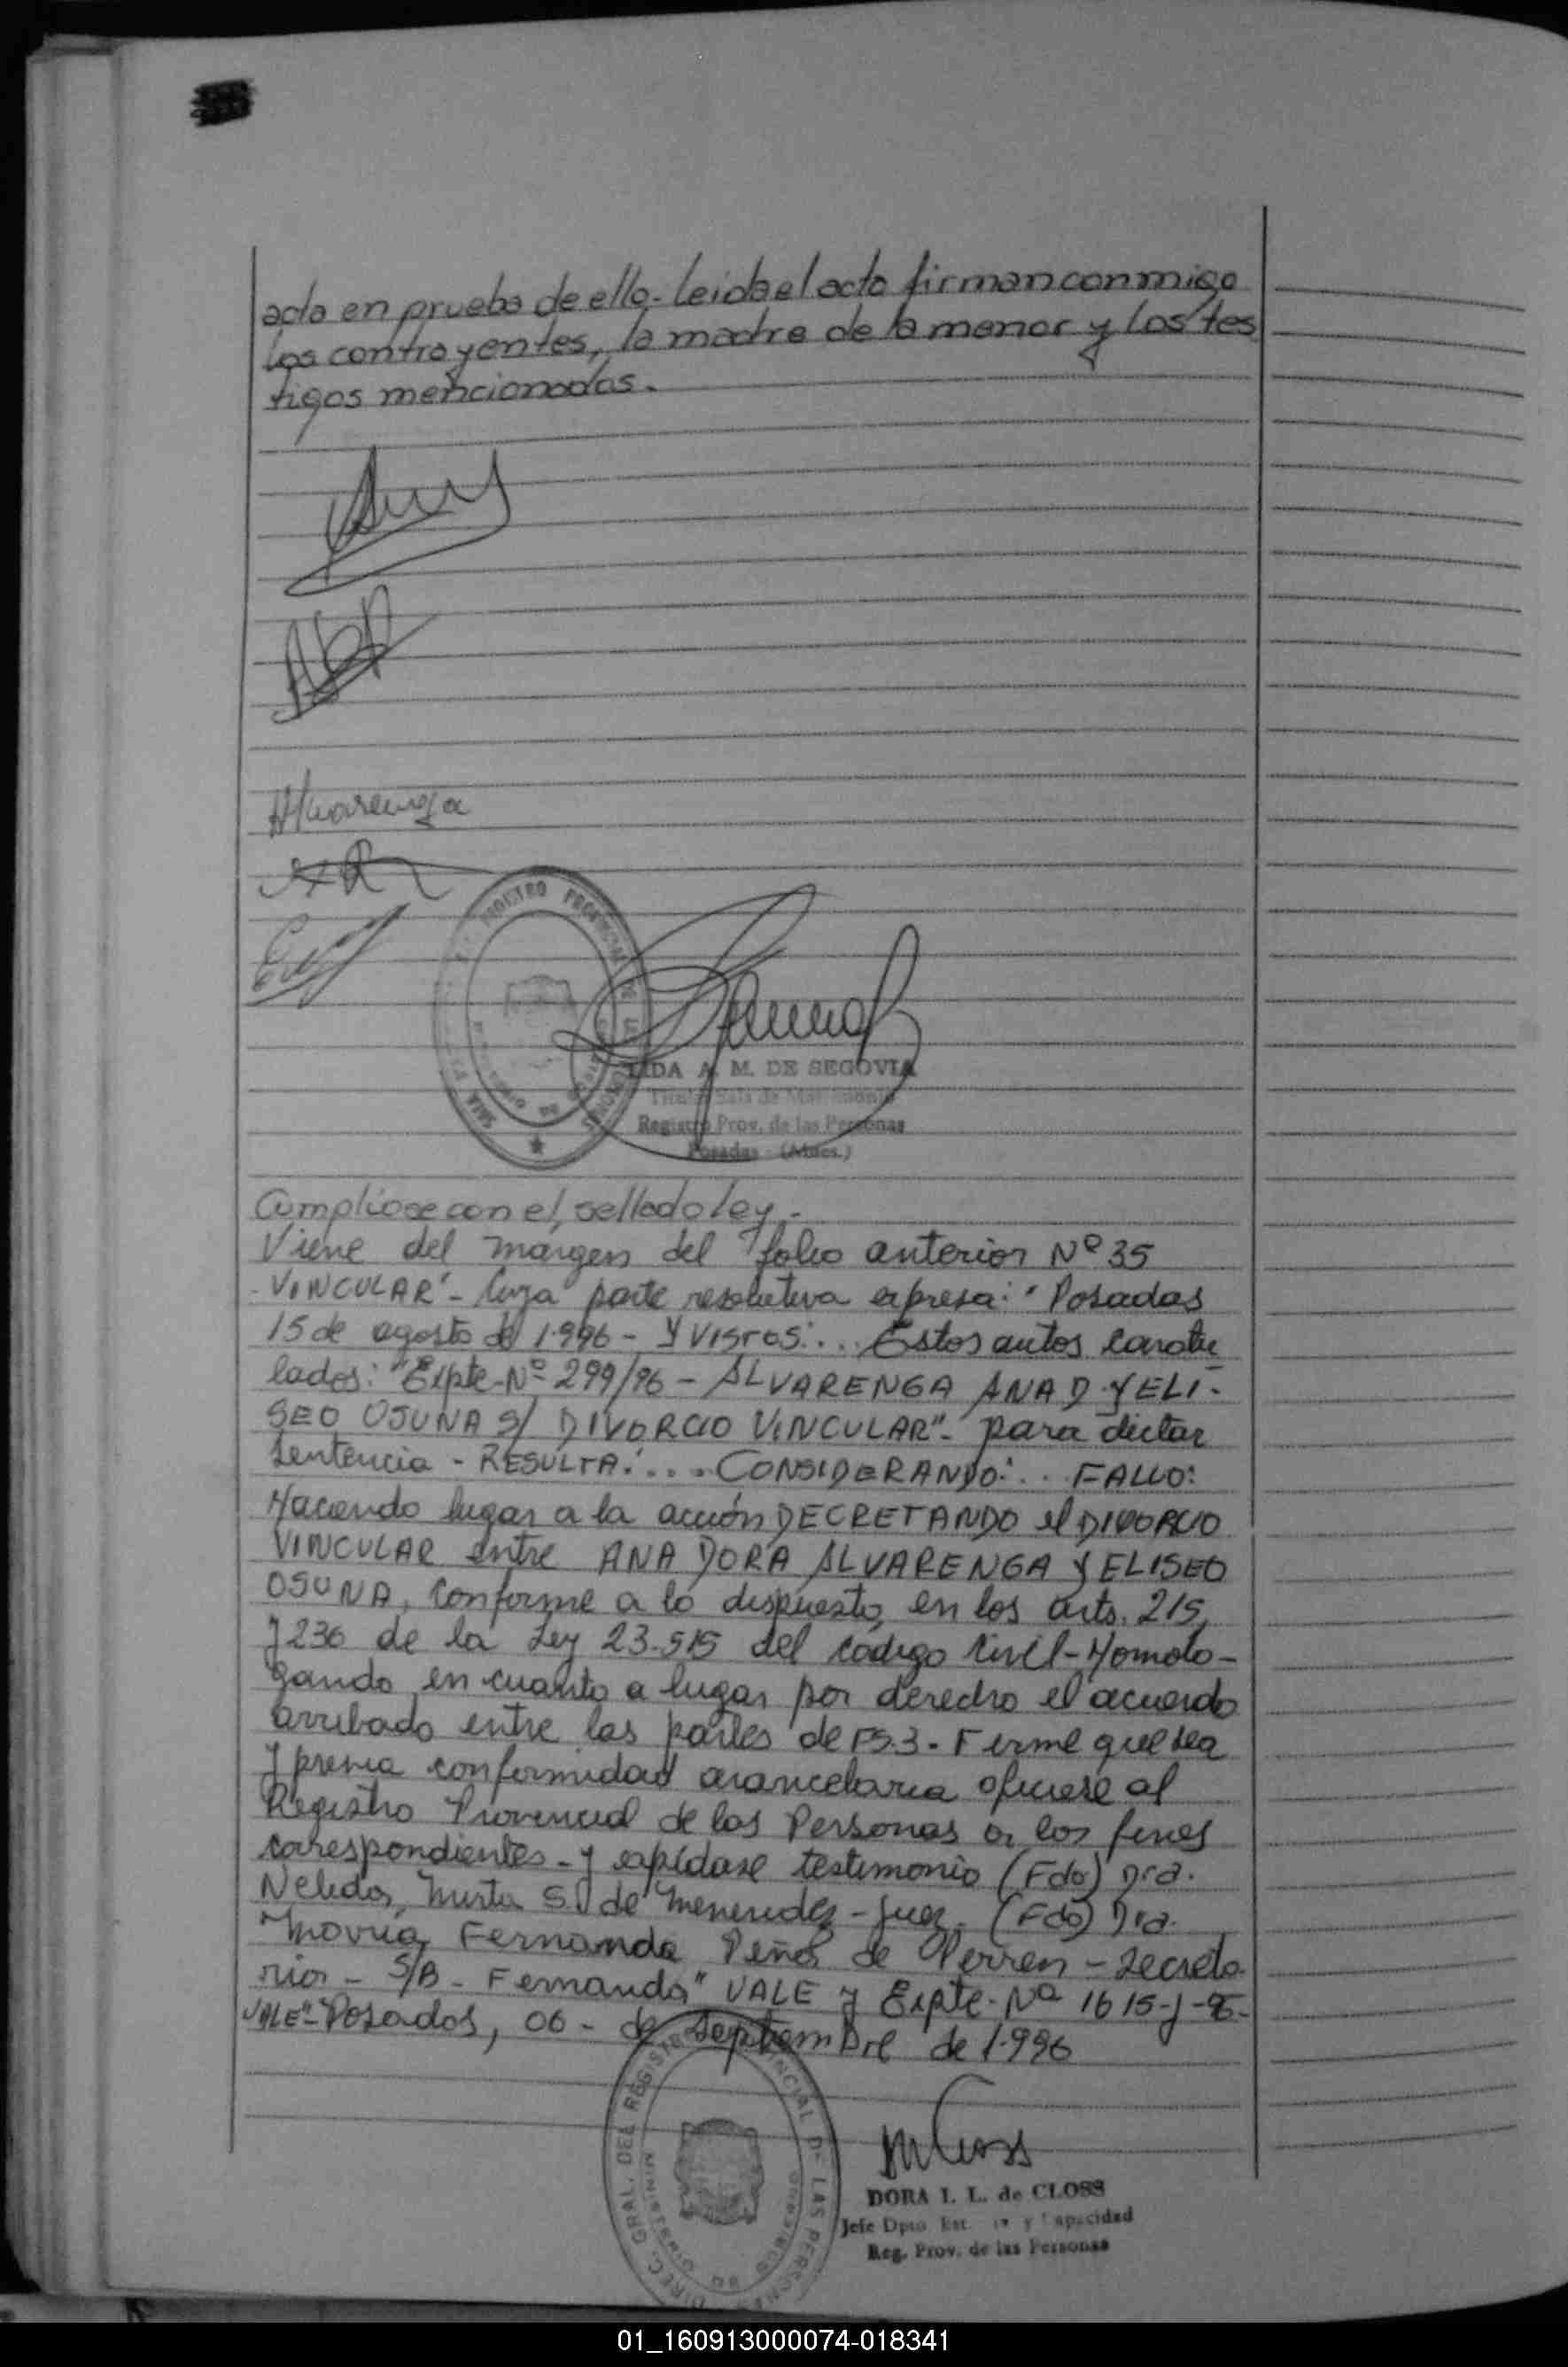 acta en prueba de ello. Leida el acta firman conmigo
los contrayentes, la madre de la menor y los tes
tigos mencionados.
Alvarenga
REGISTRO PROVINCIAL DE LAS PERSONAS
LIDA A. M. DE SEGOVIA
Titular Sala de Matrimonio
Registro Prov. de las Personas
Posadas - (Mnes.)
Cumpliose con el sellado ley.-
Viene del margen del folio anterior Nº 35
VINCULAR"- Cuya parte resolutiva expresa: "Posadas
15 de agosto de 1.996 - Y VISTOS:... Estos autos caratu
lados: "Expte-Nº 299/96 - ALVARENGA ANA D. Y ELI-
SEO OSUNA S/ DIVORCIO VINCULAR"- para dictar
sentencia - RESULTA:.... CONSIDERANDO:.. FALLO:
Haciendo lugar a la acción DECRETANDO el DIVORCIO
VINCULAR entre ANA DORA ALVARENGA Y ELISEO
OSUNA, conforme a lo dispuesto, en los arts. 215,
y 236 de la Ley 23.515 del código Civil - Homolo-
gando en cuanto a lugar por derecho el acuerdo
arribado entre las partes de FS.3 - Firme que sea
y previa conformidad arancelaria ofíciese al
Registro Provincial de las Personas a los fines
correspondientes - y expídase testimonio (Fdo) Dra.
Nelida, Mirta S. de Menendez - Juez. (Fdo) Dra.
María Fernanda Peños de Perren - Secreta
ria - S/B - Fernanda" VALE y Expte. Nº 1615-J-96-
VALE"- Posadas, 06 - de septiembre de 1.996
DIREC. GRAL. DEL REGISTRO PROVINCIAL DE LAS PERSONAS
MINISTERIO DE GOBIERNO
DORA I. L. de CLOSS
Jefe Dpto. Est. y Capacidad
Reg. Prov. de las Personas
01_160913000074-018341